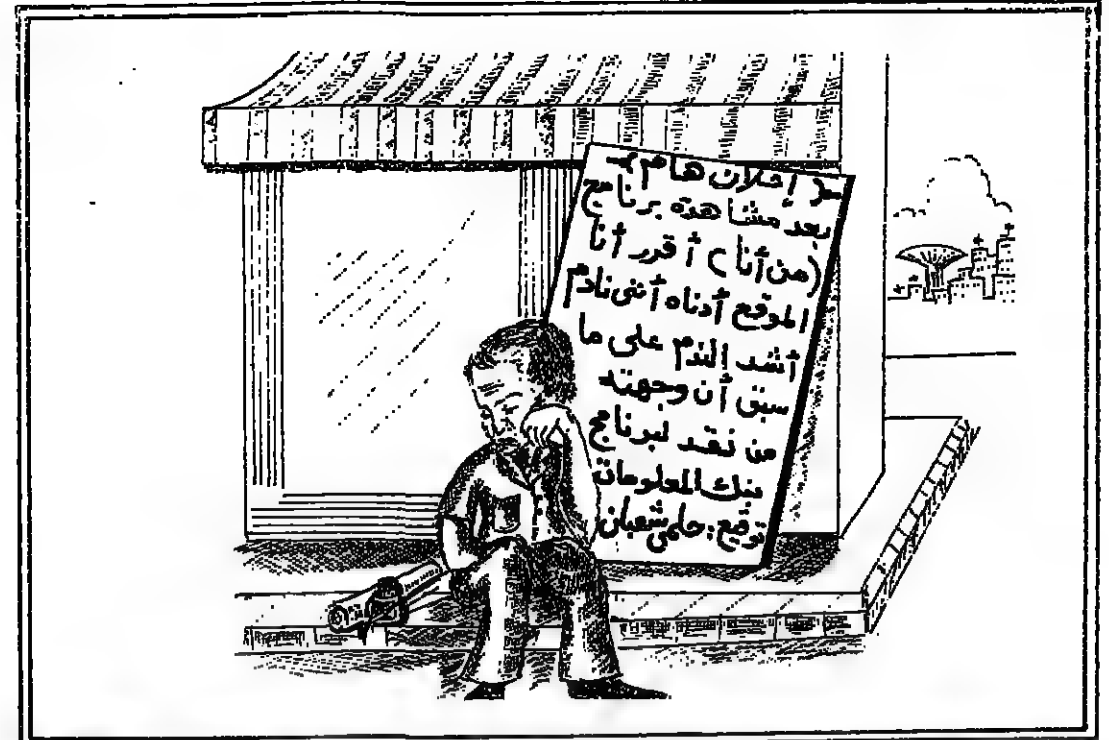 إعلان هام
بعد مشاهدة برنامج
(من أنا) أقرر أنا
الموقع أدناه أنني نادم
أشد الندم على ما
سبق أن وجهته
من نقد لبرنامج
بنك المعلومات
توقيع: حلمي شعبان